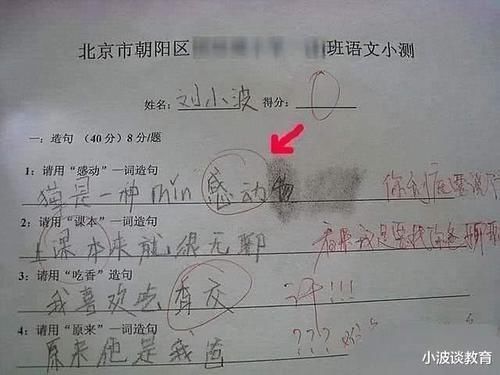 北京市朝阳区 班语文小测
姓名: 刘小波 得分: 0
一: 造句 (40分) 8分/题
1: 请用“感动”一词造句
猫是一种min感动物
2: 请用“课本”一词造句
上课本来就很无聊
3: 请用“吃香”造句
我喜欢吃香皮 汗!!!
4: 请用“原来”一词造句
原来他是我爸 ???
小波谈教育